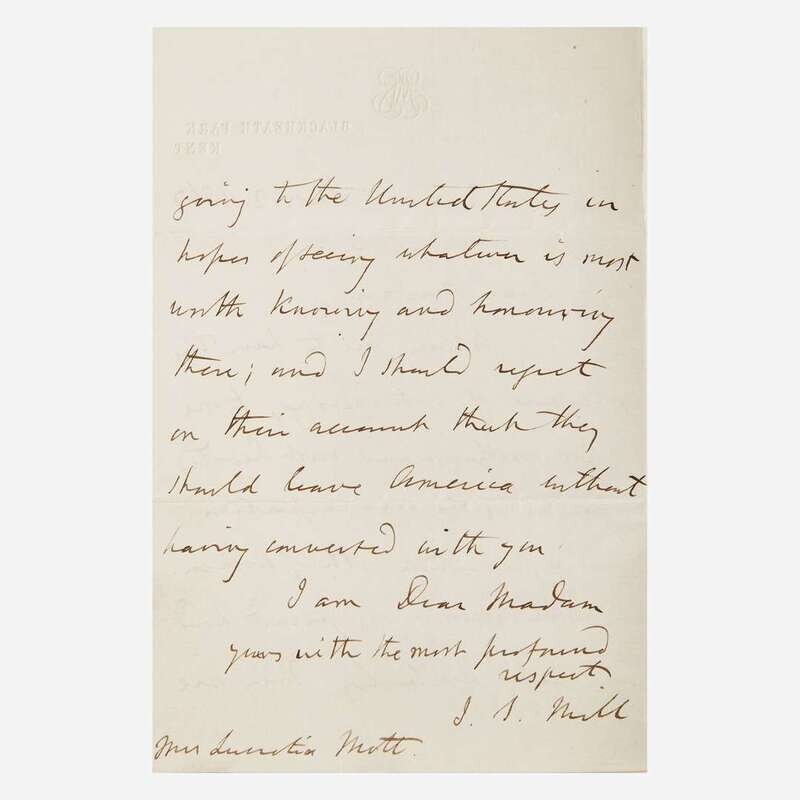 BLACKHEATH PARK
KENT
going to the United States in
hopes of seeing whatever is most
worth knowing and honouring
there; and I should regret
on their account that they
should leave America without
having conversed with you.
I am Dear Madam
yours with the most profound
respect
J. S. Mill
Mrs Lucretia Mott.